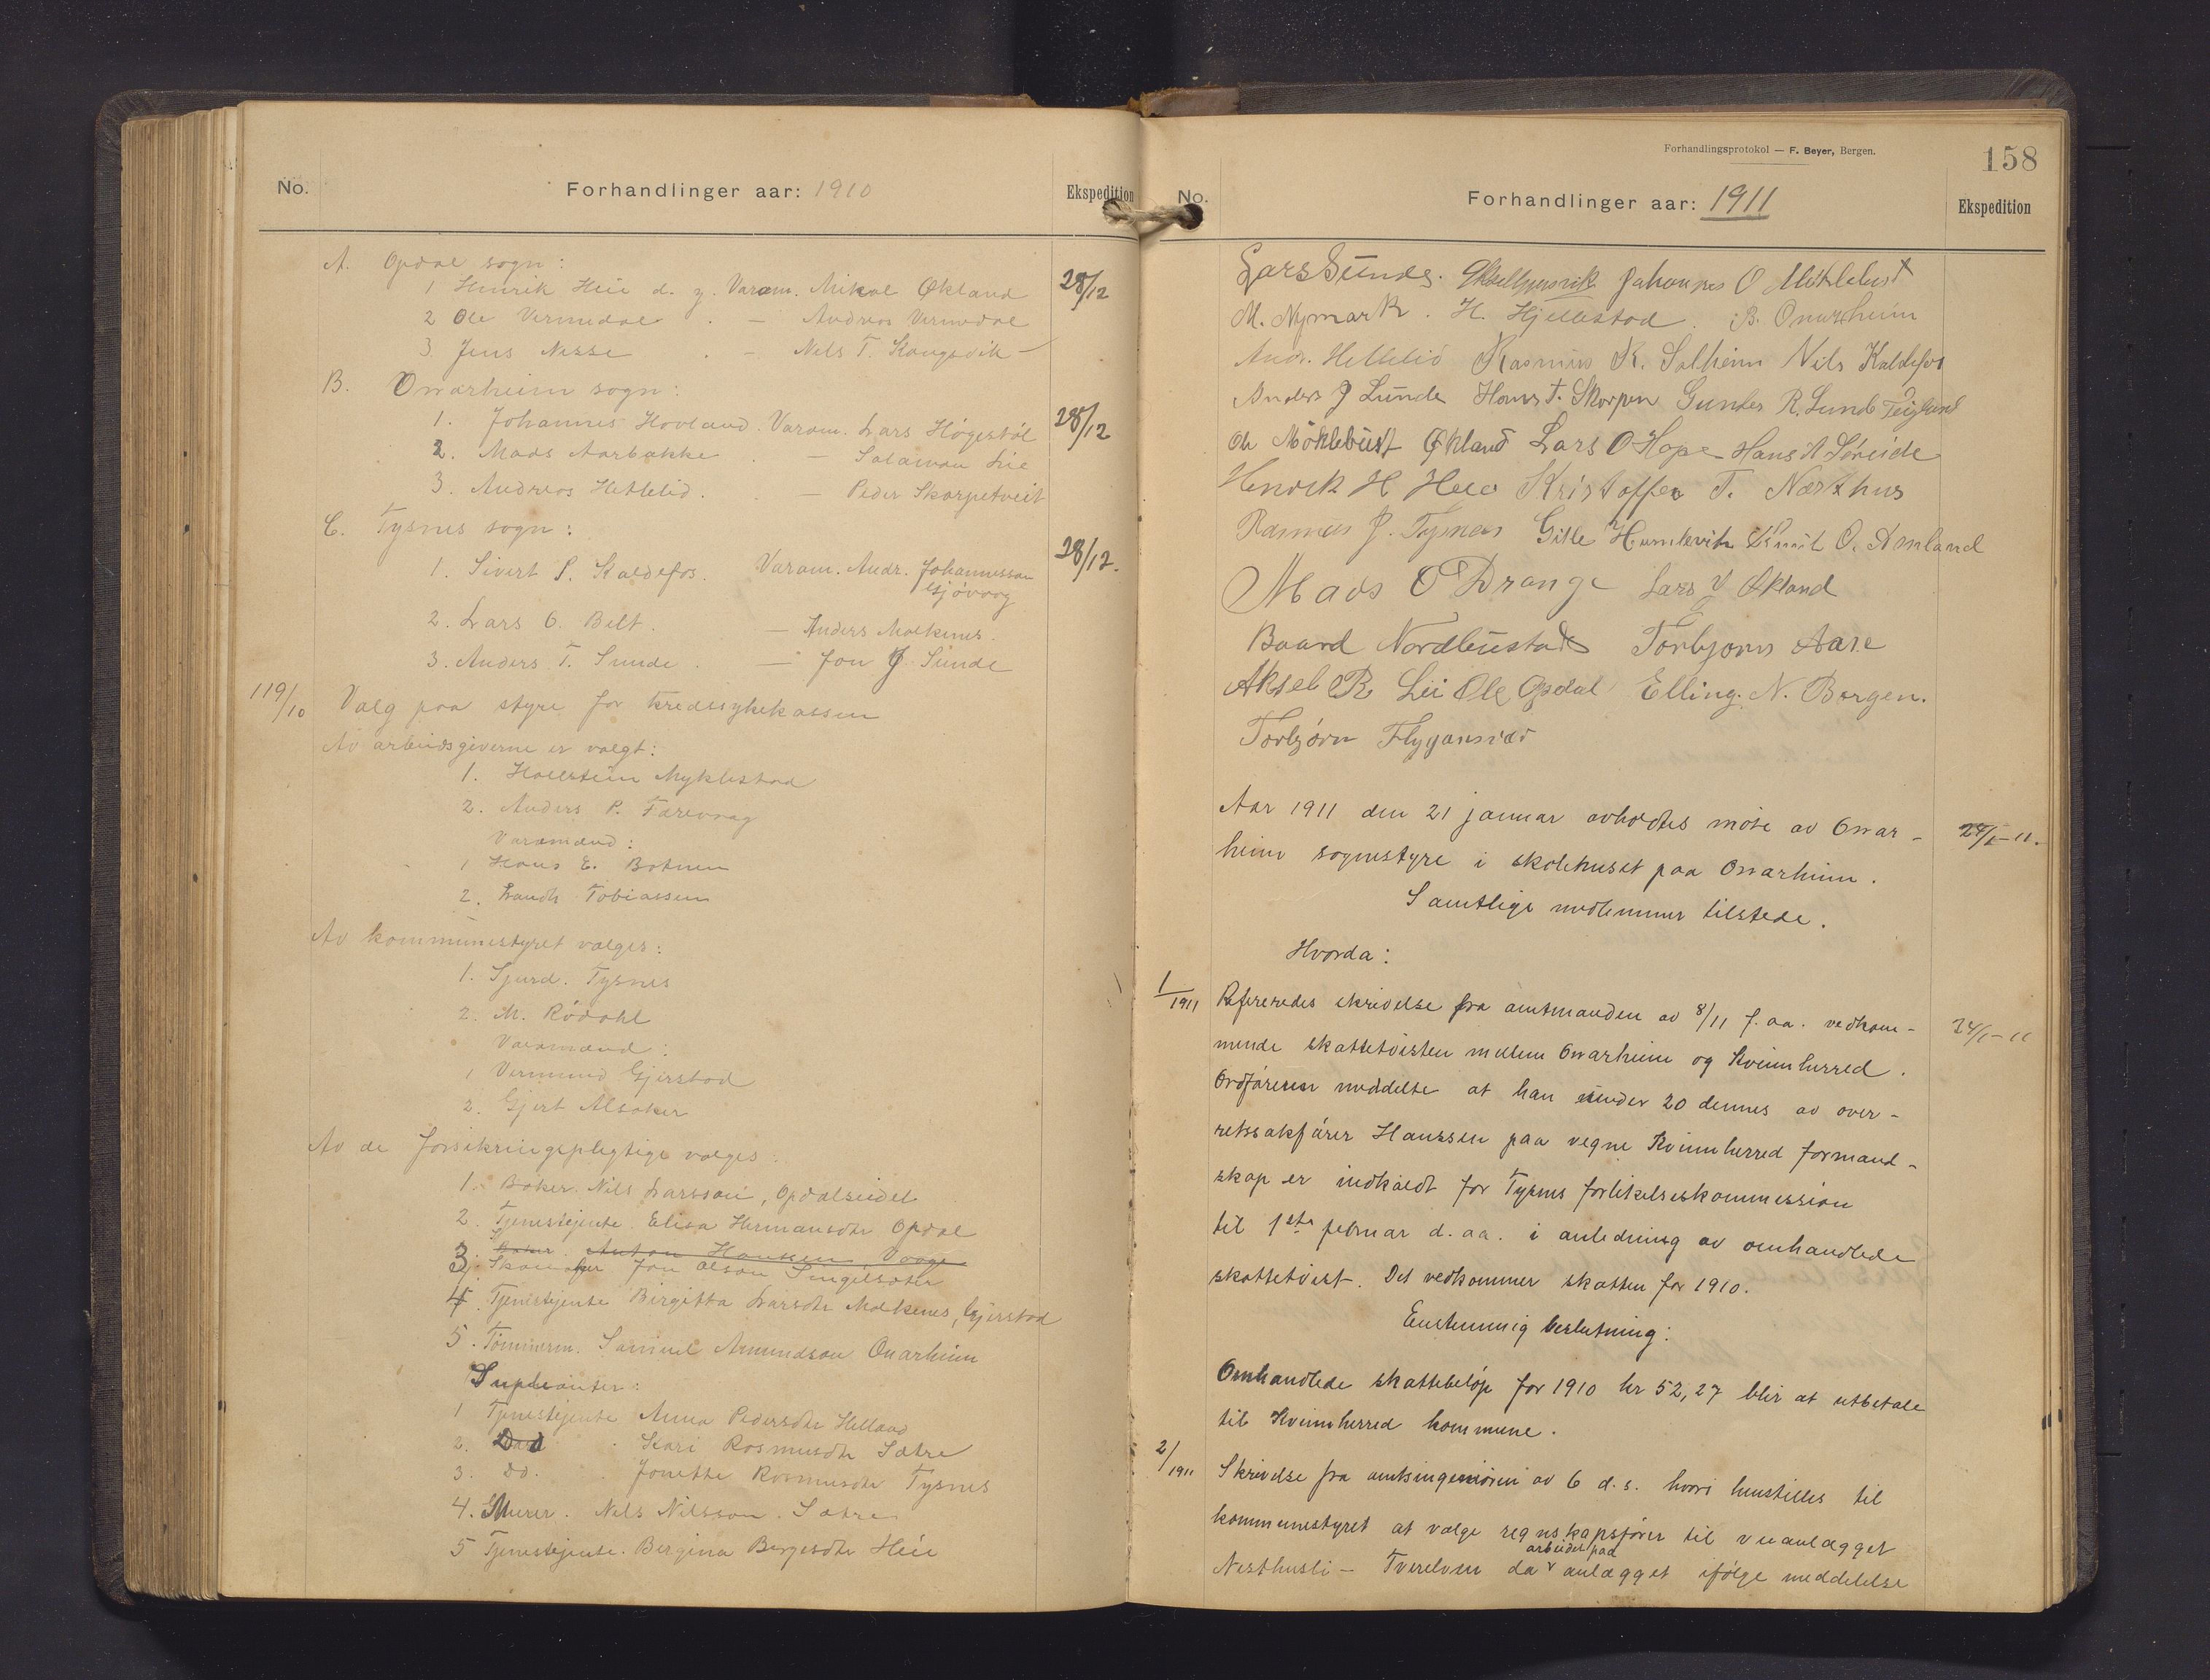 No.
Forhandlinger aar: 1910
Ekspedition
A. Opdal sogn:
1 Henrik Heie d. y. Varam. Mikal Økland 28/12
2 Ole Vermedal . — Andreas Vermedal
3. Jens Nesse . - Nils T. Kongsvik
B. Onarheim sogn:
1. Johannes Hovland. Varam. Lars Høgestøl 28/12
2. Mads Aarbakke . — Salamon Lie
3. Andreas Hetlelid. . — Peder Skorpetveit
C. Tysnes sogn:
28/12.
1. Sivert S. Kaldefos. Varam. Andr. Johannesson
Gjøvaag
2. Lars O. Belt. — Anders Malkenes.
3. Anders T. Sunde. — Jon J. Sunde
119/10 Valg paa styre for kredssykekassen
Av arbeidsgiverne er valgt:
1. Hallstein Myklestad
2. Anders P. Færevaag
Varamænd:
1 Hans E. Botnen
2. Tobiassen
Av kommunestyret vælges:
1. Sjurd. Tysnes
2. M. Rødahl
Varamænd:
1 Vermund Gjerstad
2. Gjert Alsaker
Av de forsikringspligtige vælges:
1. Baker. Nils Larsson, Opdalseidet
2. Tjenestejente Elisa Hermansdtr Opdal
3. Baker. Anton Hansen Vaage
3. Skomaker Jon Olson Singelsæter
4. Tjenestejente Birgitta Larsdtr Malkenes, Gjerstad
5. Tömmerm. Samuel Amundson Onarheim
Supleanter:
1 Tjenestejente Anna Pedersdtr Helland
2. Do . Kari Rasmusdtr Sætre
3. Do. . Jonetta Rasmusdtr Tysnes
4. Murer. Nils Nilsson. Sætre
5 Tjenestejente. Bergina Børgesdtr Heie
Forhandlingsprotokol — F. Beyer, Bergen.
158
No.
Forhandlinger aar: 1911
Ekspedition
Lars Sunde. Johannes O Møklebust
M. Nymark. H. Hjellestad. B. Onarheim
Andr. Hetlelid Rasmus R. Solheim Nils Kaldefos
Anders J Lunde Hans T. Skorpen Gunder R. Lunde Teigland
Ole Møklebust Økland Lars O Hope Hans A Söreide
Henrik H Heie Kristoffer T. Nærthus
Rasmus J. Tysnes Gitle Humlevik Knut O. Amland
Mads O Drange Lars V Økland
Baard Nordbustad Torbjørn Aase
Aksel R Lie Ole Opdal Elling. N. Bergen.
Torbjørn Flygansvær
Aar 1911 den 21 januar avholdtes møte av Onar- 24/1-11.
heim sognestyre i skolehuset paa Onarheim.
Samtlige medlemmer tilstede.
Hvorda:
1/1911 Refereredes skrivelse fra amtmanden av 8/11 f. aa. vedkom- 24/1-11
mende skattetvisten mellem Onarheim og Kvinnherred.
Ordføreren meddelte at han under 20 dennes av over-
retssakfører Hanssen paa vegne Kvinnherred formand-
skap er indkaldt for Tysnes forlikelseskommission
til 1ste februar d. aa. i anledning av omhandlede
skattetvist. Det vedkommer skatten for 1910.
Enstemmig beslutning:
Omhandlede skattebeløp for 1910 kr 52,27 blir at utbetale
til Kvinnherred kommune.
2/1911 Skrivelse fra amtsingeniøren av 6 d. s. hvori henstilles til
kommunestyret at vælge regnskapsfører til veianlægget
arbeidet paa
Nesthusli — Tverelven da v anlægget ifølge meddelelse